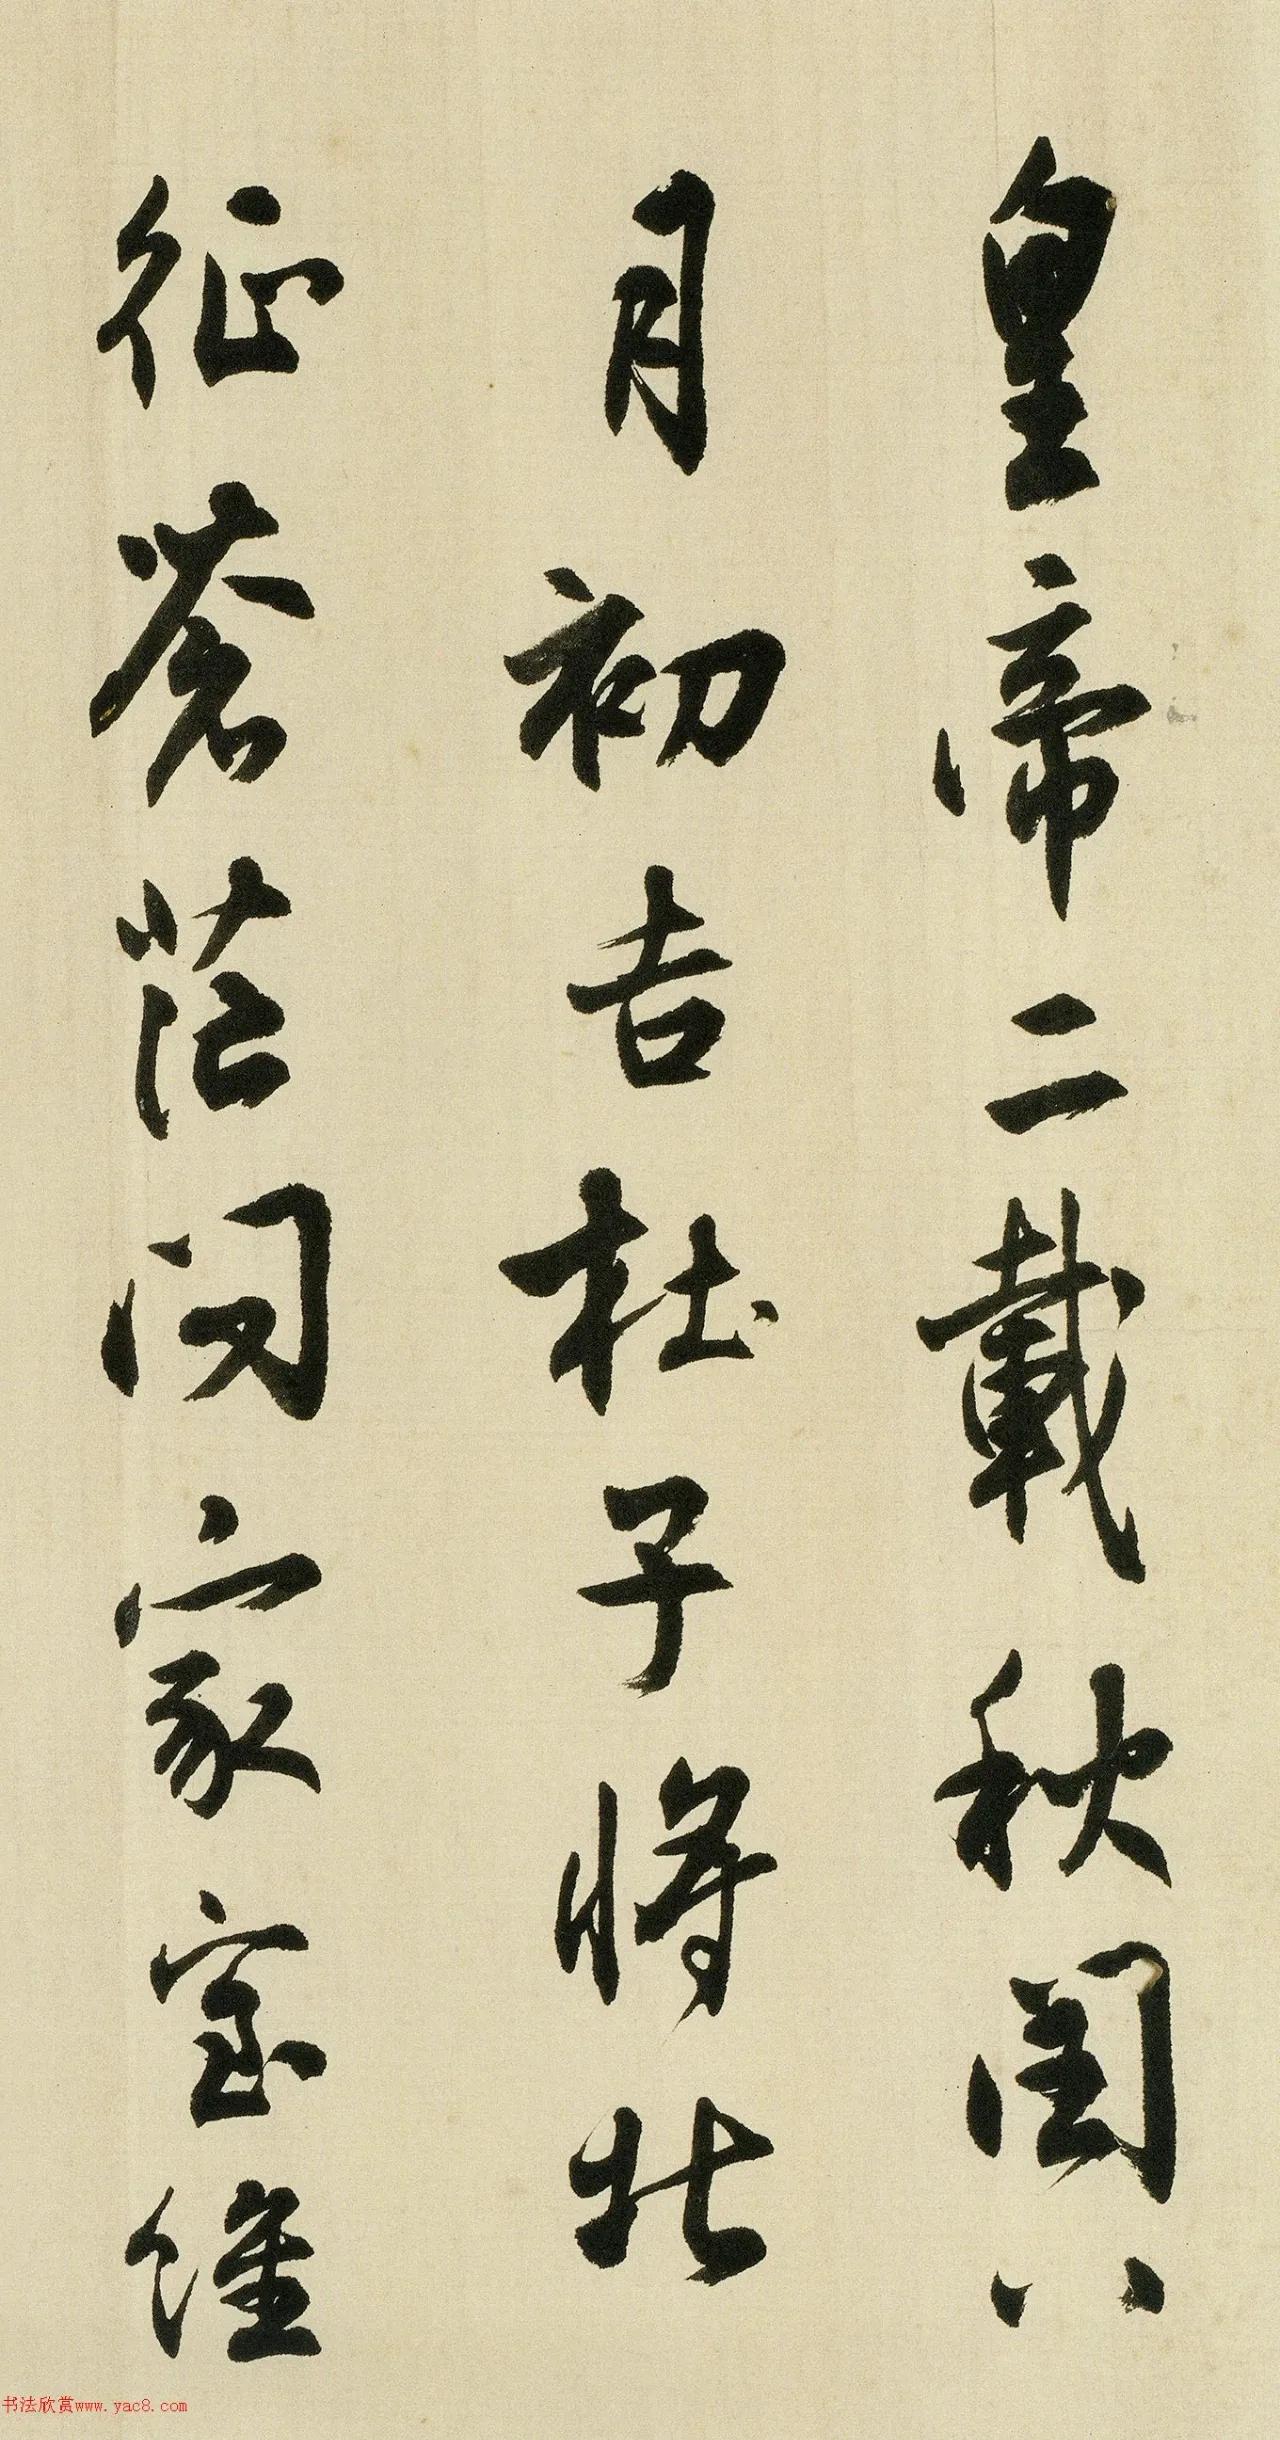 皇帝二載秋閏八
月初吉杜子將北
征蒼茫問家室維
书法欣赏www.yac8.com